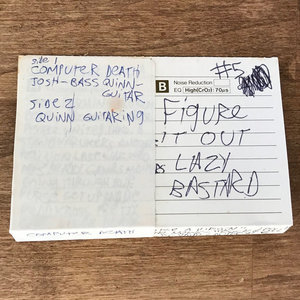 side 1
COMPUTER DEATH
JOSH-BASS QUINN-
GUITAR
SIDE 2
QUINN GUITARING
#5
B Noise Reduction
EQ High(CrO2) 70μs
Figure
IT OUT
LAZY
BASTARD
COMPUTER DEATH